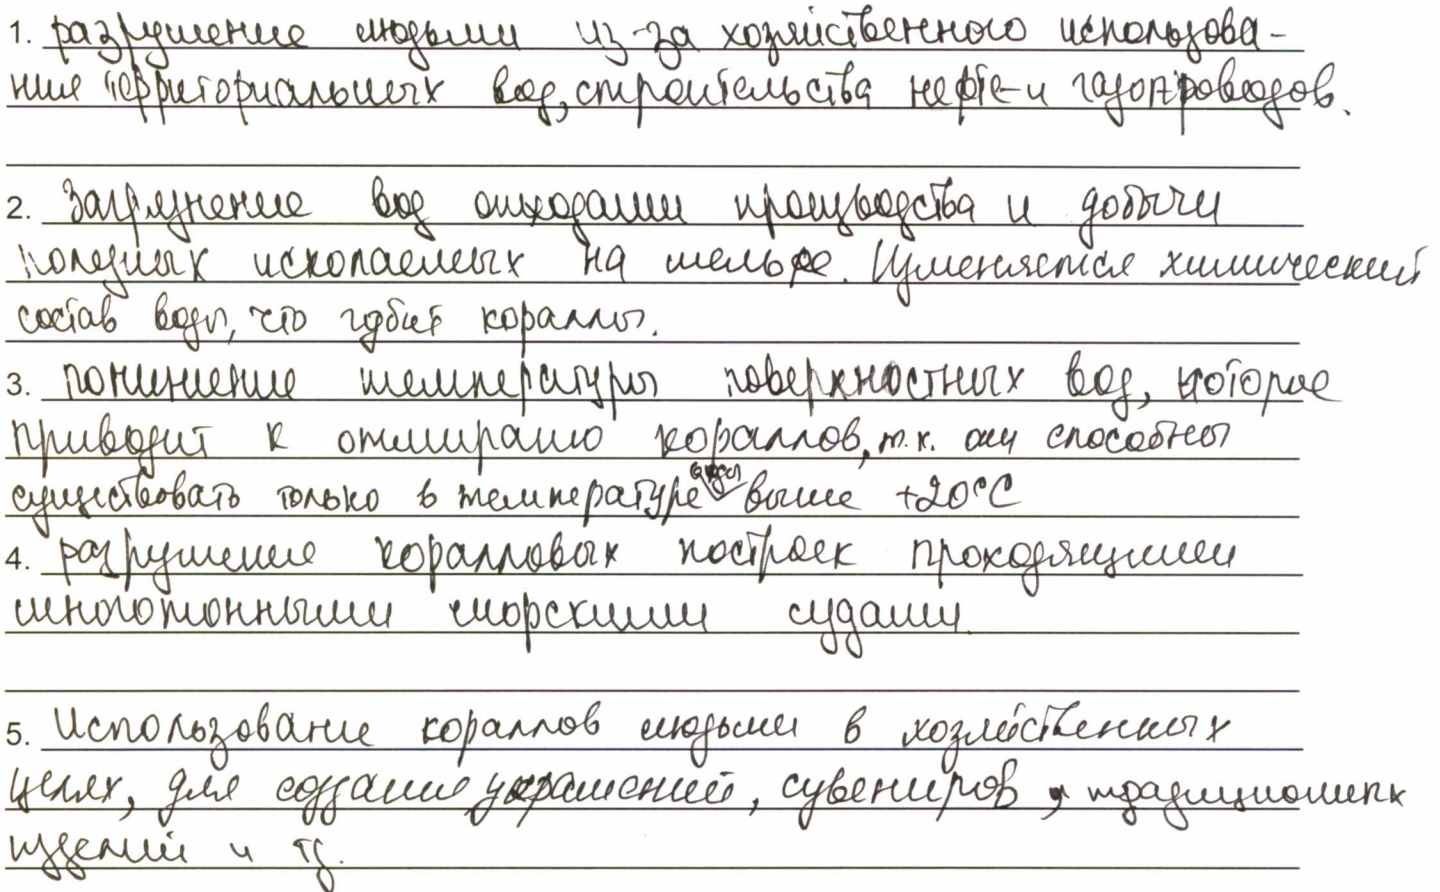 1. разрушение людьми из-за хозяйственного использова-
ния территориальных вод, строительства нефте- и газопроводов.
2. Загрязнение вод отходами производства и добычи
полезных ископаемых на шельфе. Изменяется химический
состав воды, что губит кораллы.
3. понижение температуры поверхностных вод, которое
приводит к отмиранию кораллов, т.к. они способны
существовать только в температуре воды выше +20°С
4. разрушение коралловых построек проходящими
многотонными морскими судами.
5. Использование кораллов людьми в хозяйственных
целях, для создания украшений, сувениров, традиционных
изделий и тд.